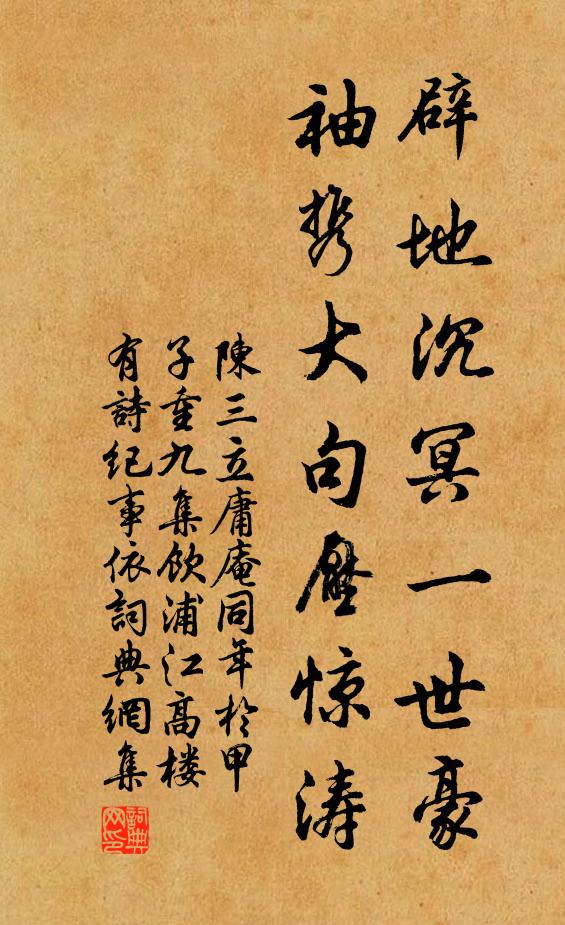 辟地沉冥一世豪
袖携大句壓惊涛
陳三立庸庵同年於甲
子重九集飲浦江高楼
有詩纪事依詞典網集
詞典
网印